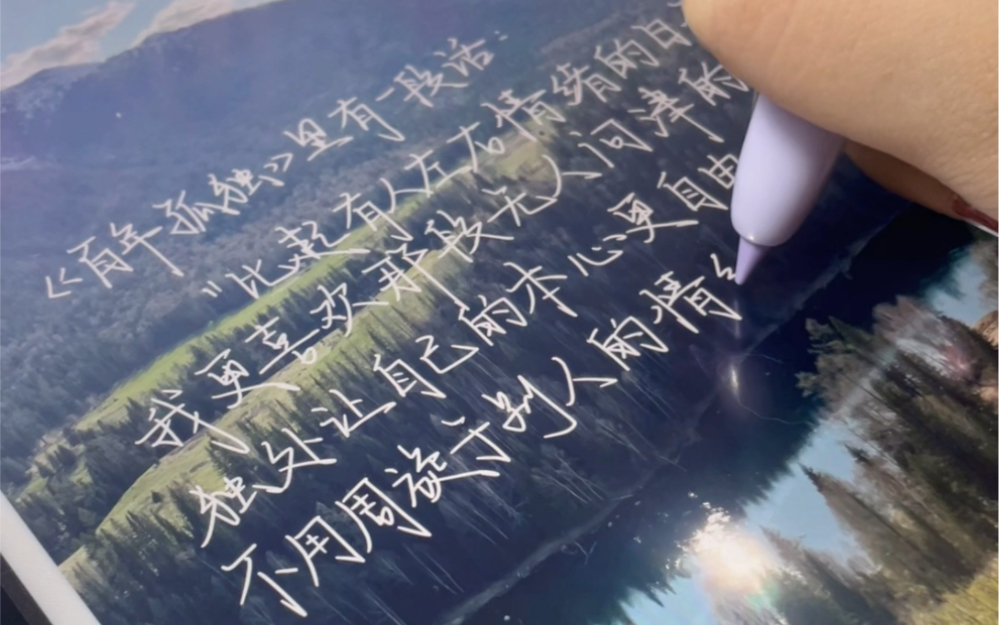 《百年孤独》里有一段话:
"比起有人左右情绪的日
我更喜欢那段无人问津的
独处让自己的本心更自由
不用周旋于别人的情